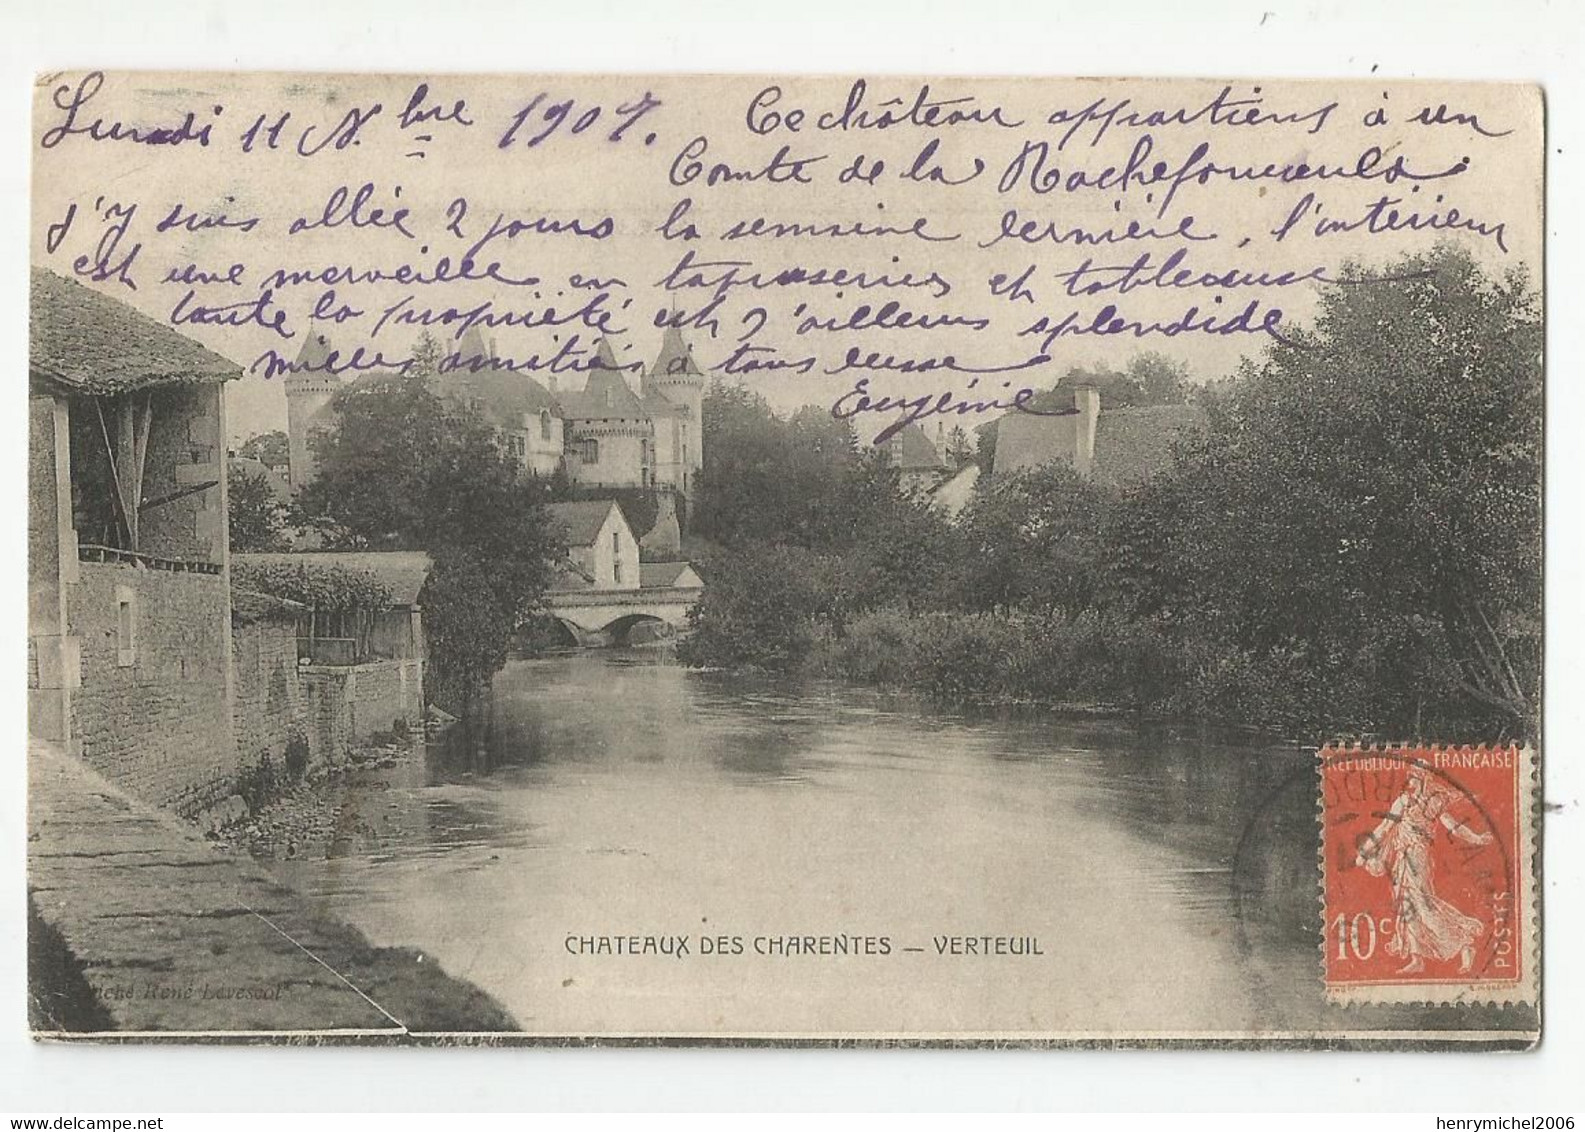 Lundi 11 N.bre 1907. Ce château appartiens à un
Comte de la Rochefoucauld.
j'y suis allée 2 jours la semaine dernière, l'intérieur
est une merveille en tapisseries et tableaux
toute la propriété est d'ailleurs splendide
milles amitiés à tous
Eugénie
CHATEAUX DES CHARENTES — VERTEUIL
René Levescot
REPUBLIQUE FRANÇAISE
10 c
POSTES
henrymichel2006